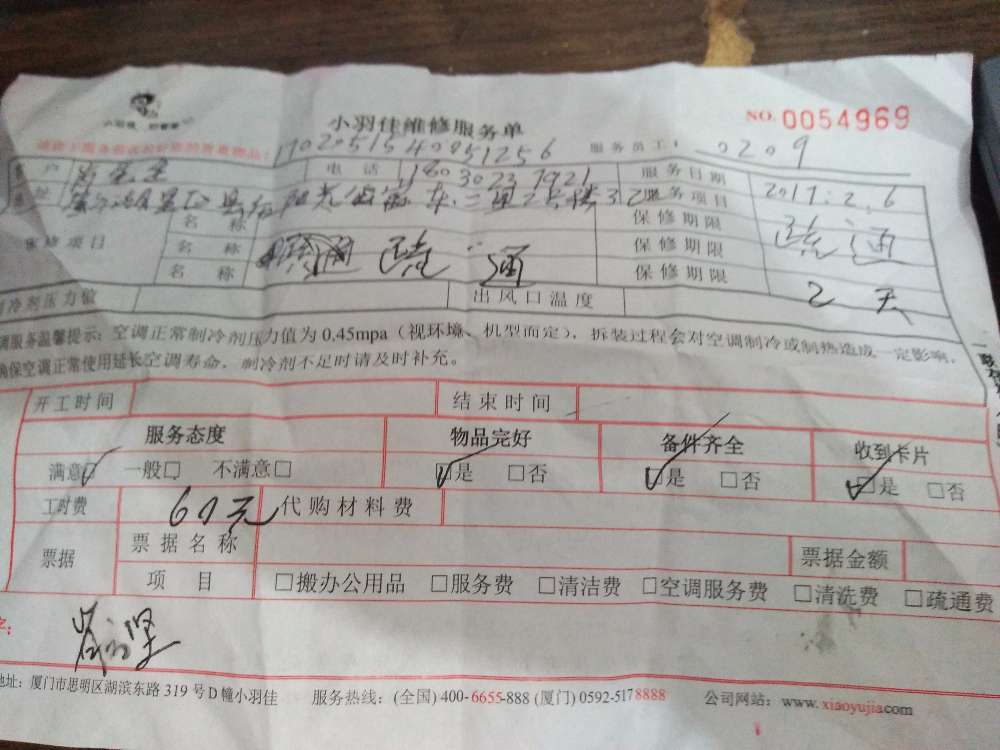 小羽佳维修服务单
NO. 0054969
1702051540851256 服务员工: 0209
客户 电话 18030237921 服务日期 2017.2.6
地址 服务项目 疏通
保修项目 名称 保修期限
名称 疏通 保修期限
名称 保修期限 2天
制冷剂压力值 出风口温度
调服务温馨提示:空调正常制冷剂压力值为0.45mpa(视环境、机型而定),拆装过程会对空调制冷或制热造成一定影响,
确保空调正常使用延长空调寿命,制冷剂不足时请及时补充。
开工时间 结束时间
服务态度 物品完好 备件齐全 收到卡片
满意☑ 一般□ 不满意□ ☑是 □否 ☑是 □否 ☑是 □否
工时费 60元 代购材料费
票据 票据名称 票据金额
项目 □搬办公用品 □服务费 □清洁费 □空调服务费 □清洗费 □疏通费
地址:厦门市思明区湖滨东路319号D幢小羽佳 服务热线:(全国)400-6655-888 (厦门)0592-5178888 公司网站:www.xiaoyujia.com